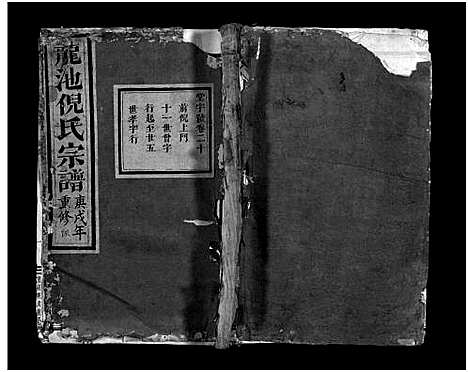 龍池倪氏宗譜
庚戌年
重修
字號卷二十
前倪上門
十一世曾字
行起至廿五
世孝字行